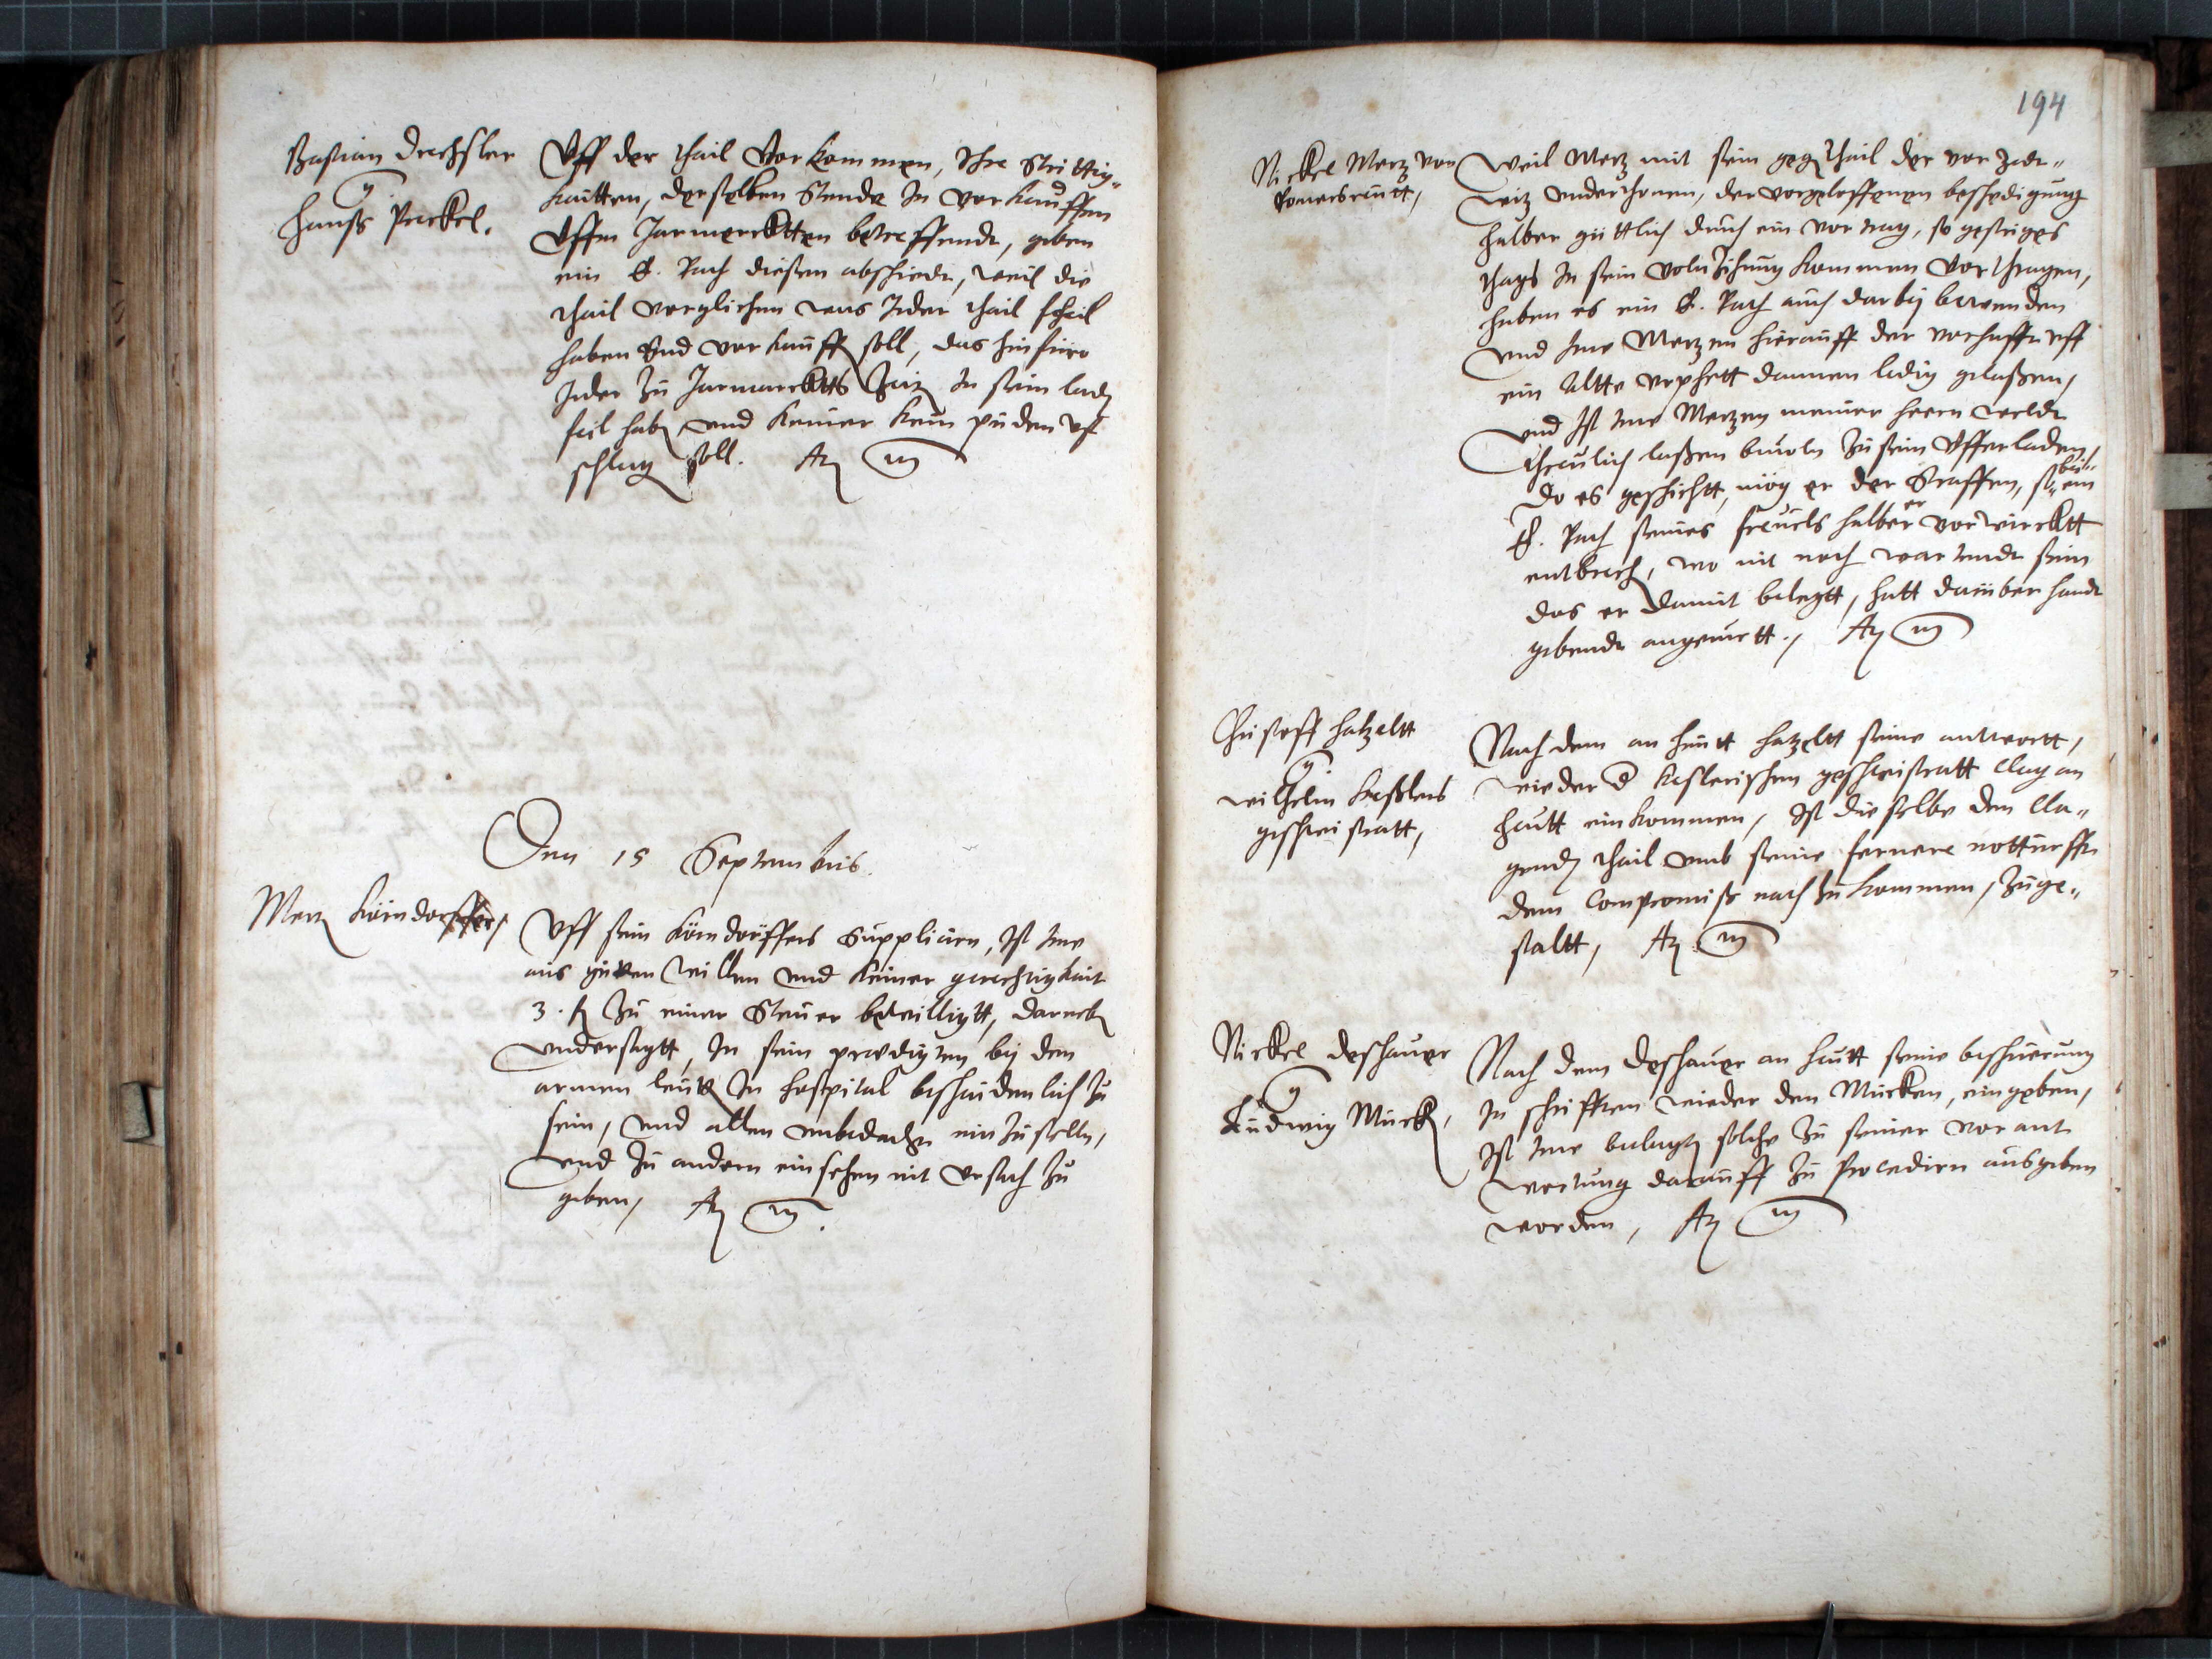 Bastian Drechsler
Hanß Peckel.
Uff der thail Vorkommen, Ihre Strittig-
kaitten, derselben Stende In vorkauffen
Uffen Jarmerckten betreffende, geben
ein E. Rath diesen abschiede, weil die
thail verglichen was Jder thail feil
haben Vnd vorkauff soll, das hinfüro
Jder zu Jarmarckts Zeit In sein laden
feil hab, vnd keiner kein puden uf
schlag soll. Act
Den 15 Septembris.
Mertz Körndorffer,
Uff sein Körndorffers Supplicirn, Ist Ime
aus guten willen vnd keiner gerechtigkait
3. fl Zu einer Steuer bewilligtt, darneben
vndersagtt, In sein predigten bey den
armen leutt In hospital bescheidenlich zu
sein, vnd allen vnbedacht einzustelln,
vnd zu andern einsehen nit Vrsach zu
geben, Act
194
Nickel Mertz von
Komersreutt,
Weil Mertz mit sein gegenthail der von zedt-
witz vnderthonen, der vorgeloffenen beschedigung
halber güttlich durch ein vortrag, so gestriges
thags In sein volnzihung kommen Vorthragen,
haben es ein E. Rath auch darbey bewenden
vnd Ime Mertzen hierauff der vorhafft vff
ein Altte vrphett dannen ledig gelaßen,
vnd Ist Ime Mertzen meiner herrn
threulich laßen beuoln
Do es geschicht, mög er der Straffen, so bei ein
E. Rath seines freuels halber er vorwircktt
entbrech, wo nit noch wartende sein
das er damit belegtt, hatt darüber hand
gebende angerurtt., Act
Christoff Hatzeltt
Wilhelm Keßlers
geschwistratt,
Nach dem an heutt Hatzeltt seine antwortt,
wieder d Keslerischen geschwistratt clag an
heutt einkommen, Ist dieselbe dem cla-
genden thail vmb seine fernere notturfft
dem Compromiß nach zu kommen, zuge-
staltt, Act
Nickel Deschauer
Ludwig Mück,
Nach dem Deschauer an heutt seine beschwerung
In schrifften wieder den Mücken, eingeben,
Ist Ime beclagten solche zu seiner vorant
wortung darauff zu Procedirn ausgeben
worden, Act